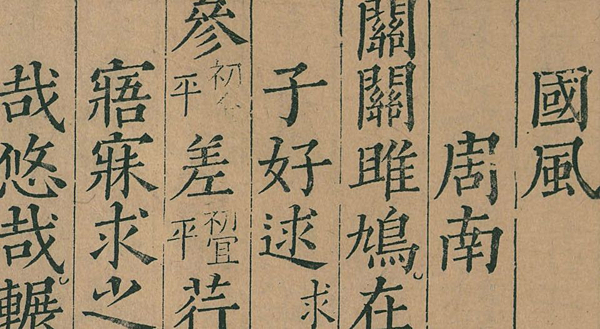 國風
周南
關關雎鳩。在
子好逑求
參初平差初宜平荇
寤寐求之
哉悠哉。輾